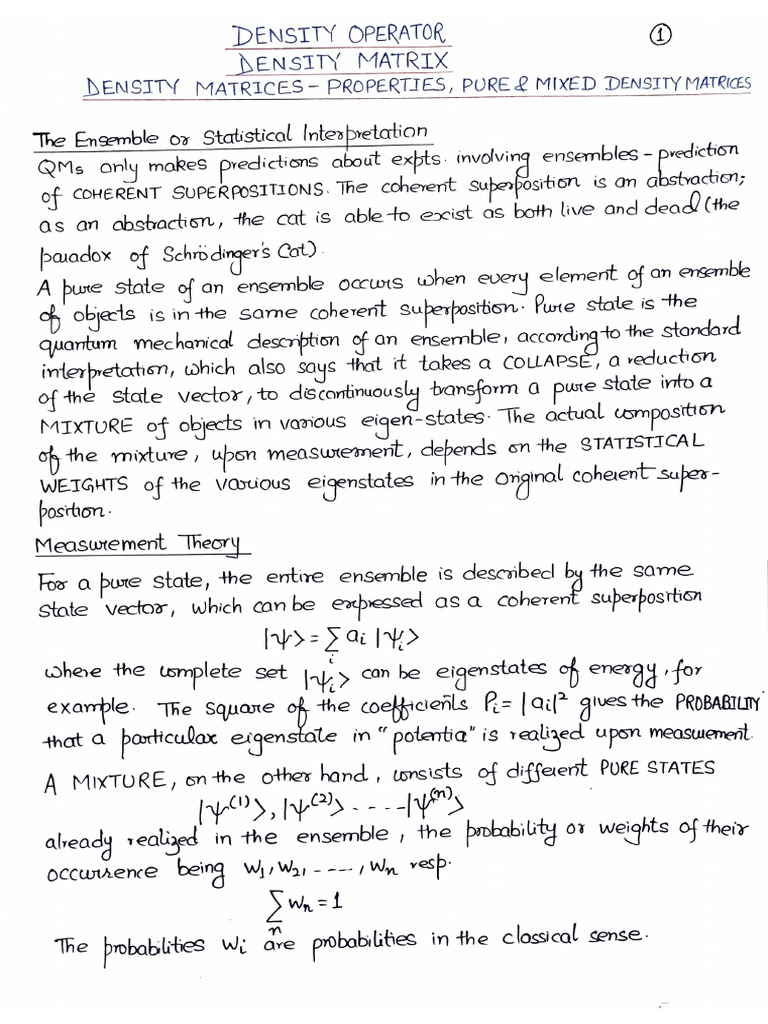 DENSITY OPERATOR
①
DENSITY MATRIX
DENSITY MATRICES – PROPERTIES, PURE & MIXED DENSITY MATRICES
The Ensemble or Statistical Interpretation
QMs only makes predictions about expts. involving ensembles – prediction
of COHERENT SUPERPOSITIONS. The coherent superposition is an abstraction;
as an abstraction, the cat is able to excist as both live and dead (the
paradox of Schrödinger's Cat).
A pure state of an ensemble occurs when every element of an ensemble
of objects is in the same coherent superposition. Pure state is the
quantum mechanical description of an ensemble, according to the standard
interpretation, which also says that it takes a COLLAPSE, a reduction
of the state vector, to discontinuously transform a pure state into a
MIXTURE of objects in various eigen-states. The actual composition
of the mixture, upon measurement, depends on the STATISTICAL
WEIGHTS of the various eigenstates in the original coherent super-
position.
Measurement Theory
For a pure state, the entire ensemble is described by the same
state vector, which can be expressed as a coherent superposition
|ψ> = ∑_i a_i |ψ_i>
where the complete set |ψ_i> can be eigenstates of energy, for
example. The square of the coefficients P_i = |a_i|² gives the PROBABILITY
that a particular eigenstate in "potentia" is realized upon measurement.
A MIXTURE, on the other hand, consists of different PURE STATES
|ψ^(1)>, |ψ^(2)> ----- |ψ^(n)>
already realized in the ensemble, the probability or weights of their
occurrence being W_1, W_2, ----, W_n resp.
∑_n W_n = 1
The probabilities W_i are probabilities in the classical sense.